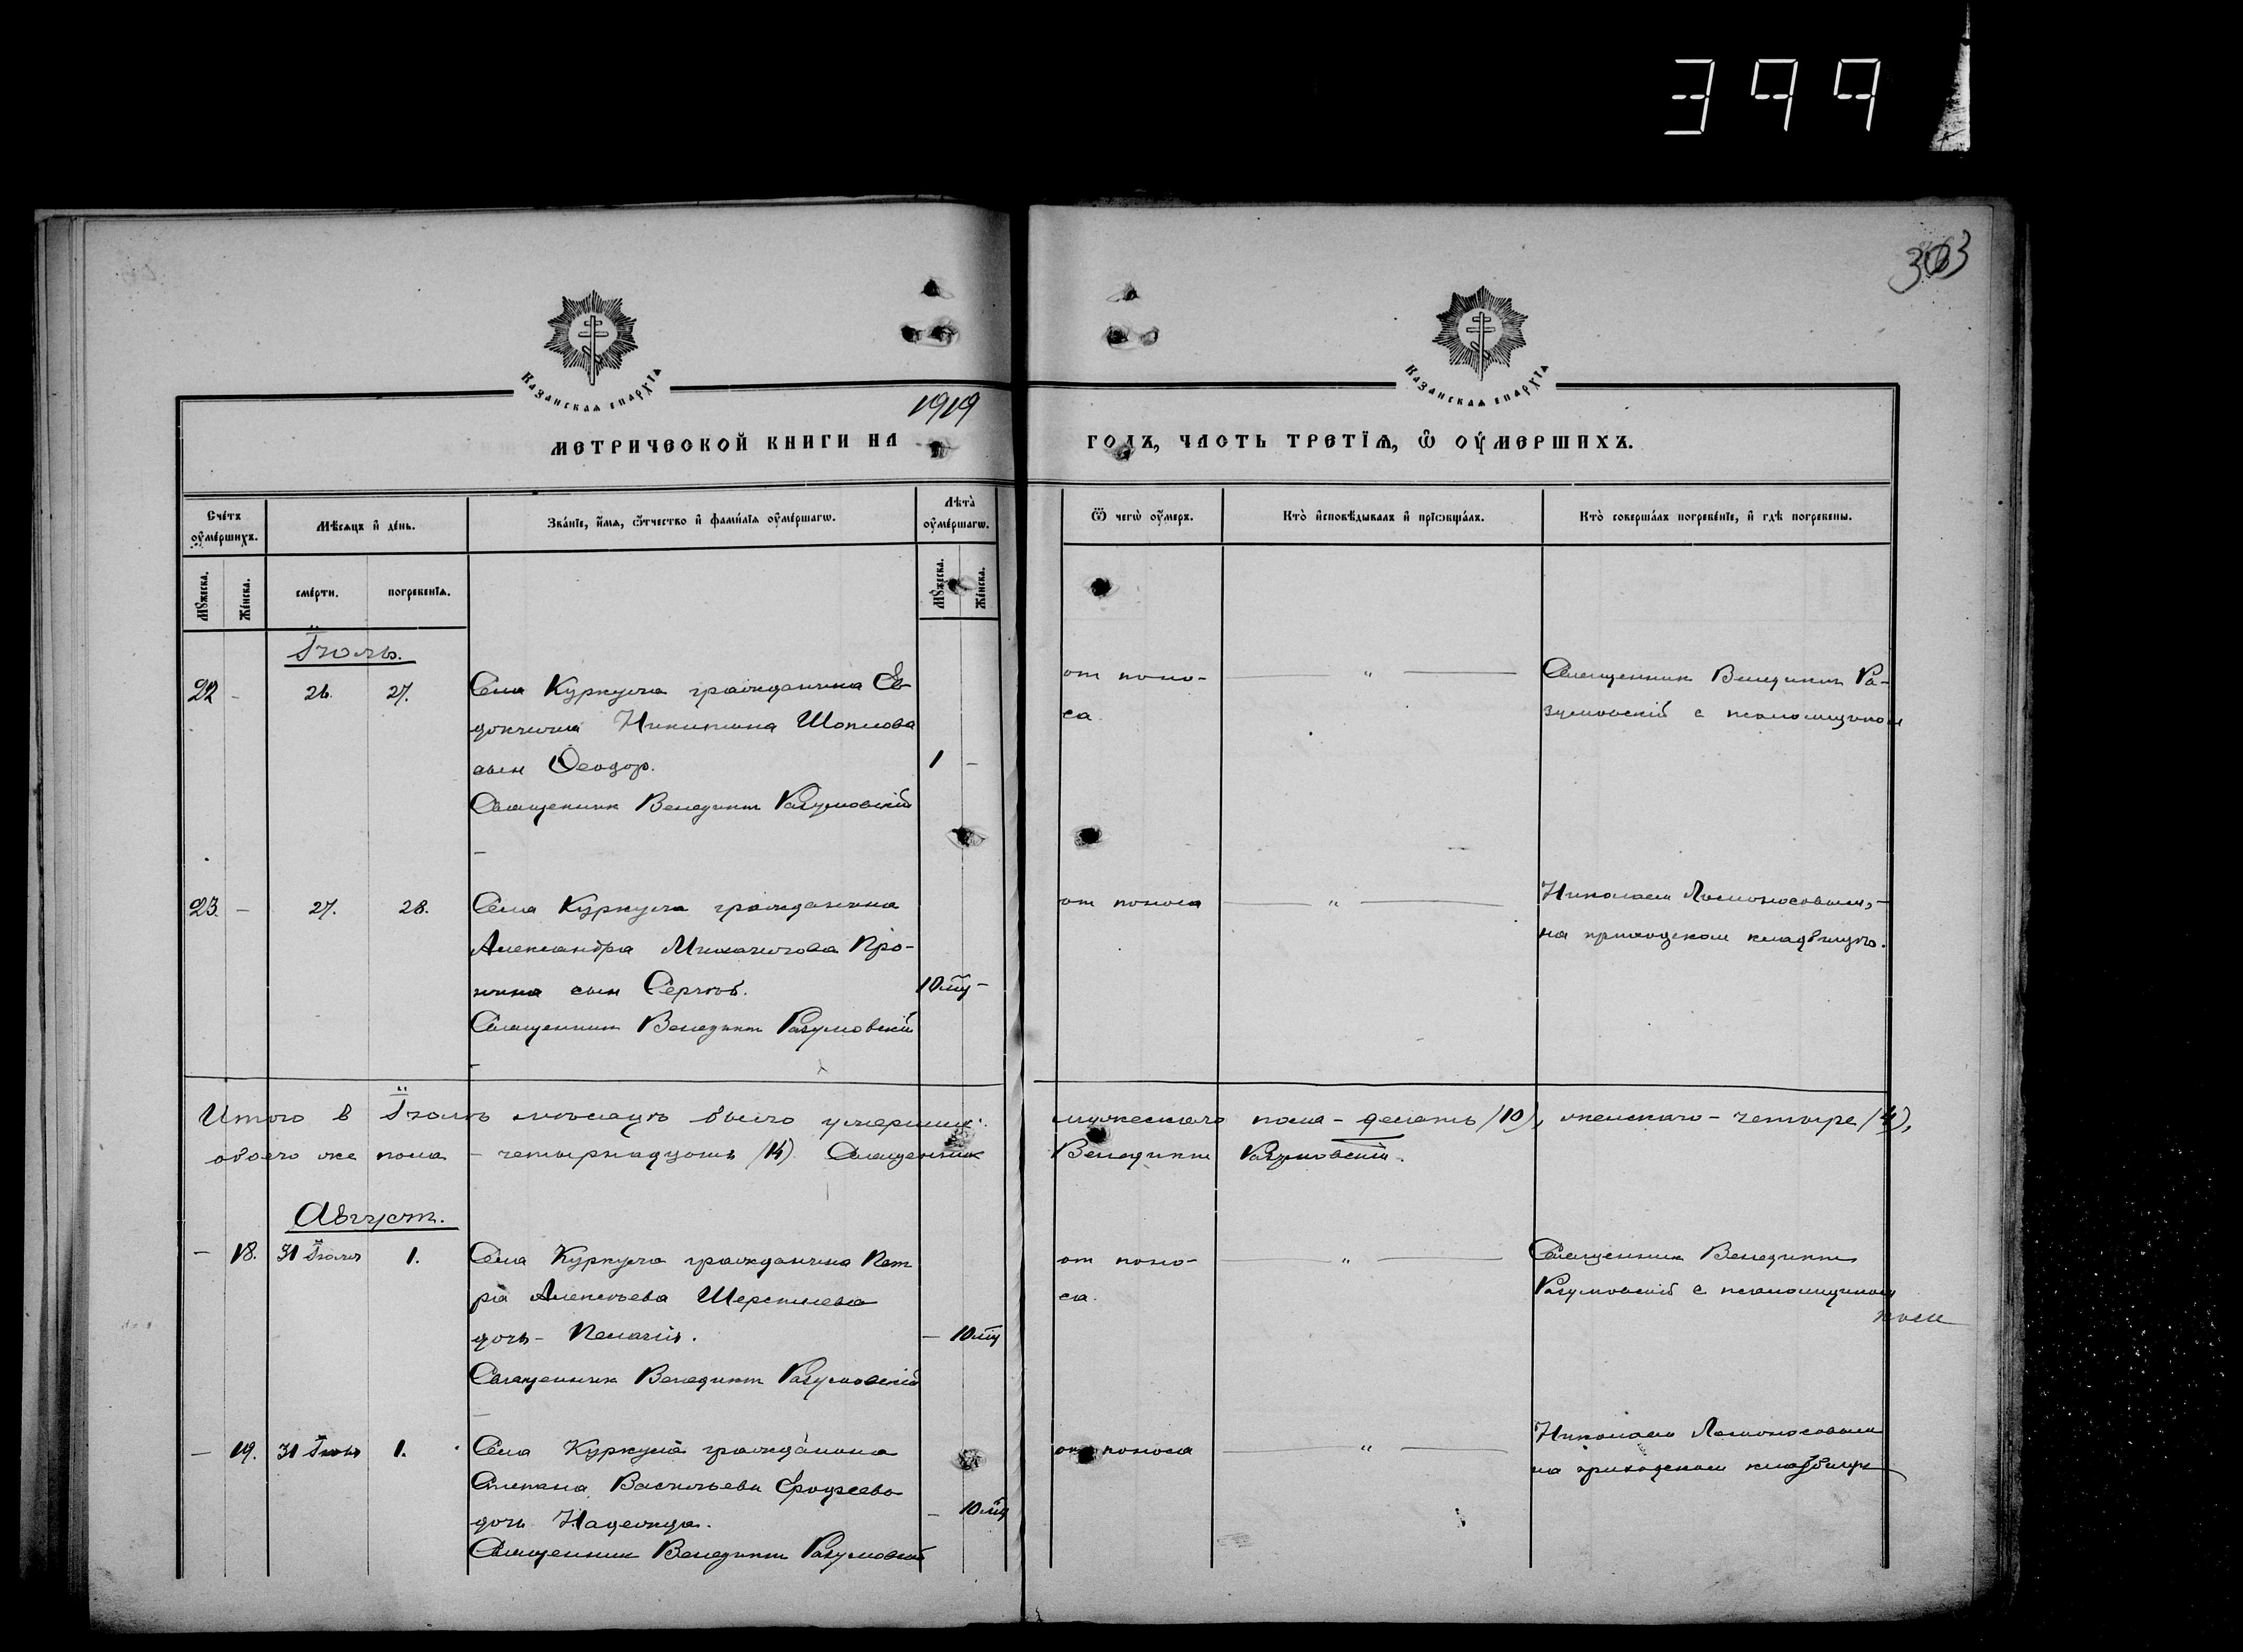 399
303
Казанская епархїѧ
Казанская епархїѧ
1919
МЕТРИЧЕСКОЙ КНИГИ НА
ГОДЪ, ЧАСТЬ ТРЕТЇѦ, Ѽ ОУМЕРШИХЪ.
Счетъ оумершихъ.
Мѣсяцъ и день.
Званїе, имѧ, ѿчество и фамилїѧ оумершагѡ.
Лѣта оумершагѡ.
Ѿ чегѡ оумеръ.
Кто исповѣдывалъ и прїѡбщалъ.
Кто совершалъ погребенїе, и гдѣ погребены.
Мꙋжеска.
Женска.
смерти.
погребенїѧ.
Мꙋжеска.
Женска.
Іюль.
22 - 26. 27. Села Куркуля гражданина Ев-
докима Никитина Шоплова
сын Ѳеодор. 1 -
Священник Венедикт Разумовскій
от поно-
са.
"
Священник Венедикт Ра-
зумовскій с псаломщиком
23. - 27. 28. Села Куркуля гражданина
Александра Михаилова Про-
нина сын Сергѣй. 10 мц -
Священник Венедикт Разумовскій
от поноса
"
Николаем Ломоносовым,-
на приходском кладбищѣ.
Итого в Іюлѣ мѣсяцѣ было умерших: мужескаго пола - десять /10/, женскаго - четыре /4/,
обоего же пола - четырнадцать /14/ Священник Венедикт Разумовскій.
Август.
- 18. 31 Іюля 1. Села Куркуля гражданина Пет
ра Алексѣева Шерстнева
дочь - Пелагія. - 10 мц
Священник Венедикт Разумовскій
от поно-
са.
"
Священник Венедикт
Разумовскій с псаломщиком
- 19. 31 Іюля 1. Села Куркуля гражданина
Степана Васильева
дочь Надежда. - 10 мц
Священник Венедикт Разумовскій
от поноса
"
Николаем Ломоносовым
на приходском кладбищѣ